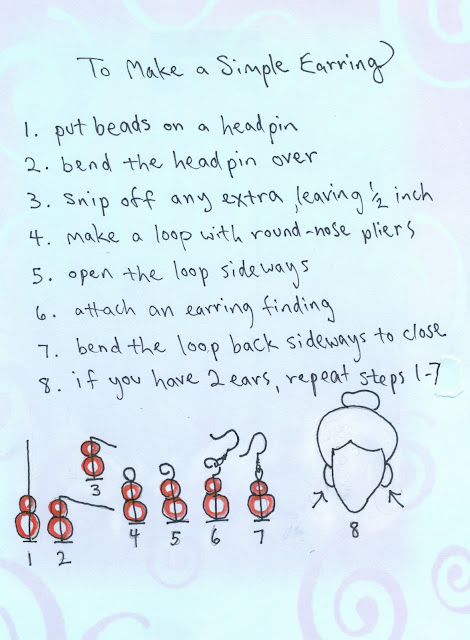 To Make a Simple Earring
1. put beads on a headpin
2. bend the headpin over
3. snip off any extra, leaving 1/2 inch
4. make a loop with round-nose pliers
5. open the loop sideways
6. attach an earring finding
7. bend the loop back sideways to close
8. if you have 2 ears, repeat steps 1-7
1 2 3 4 5 6 7 8